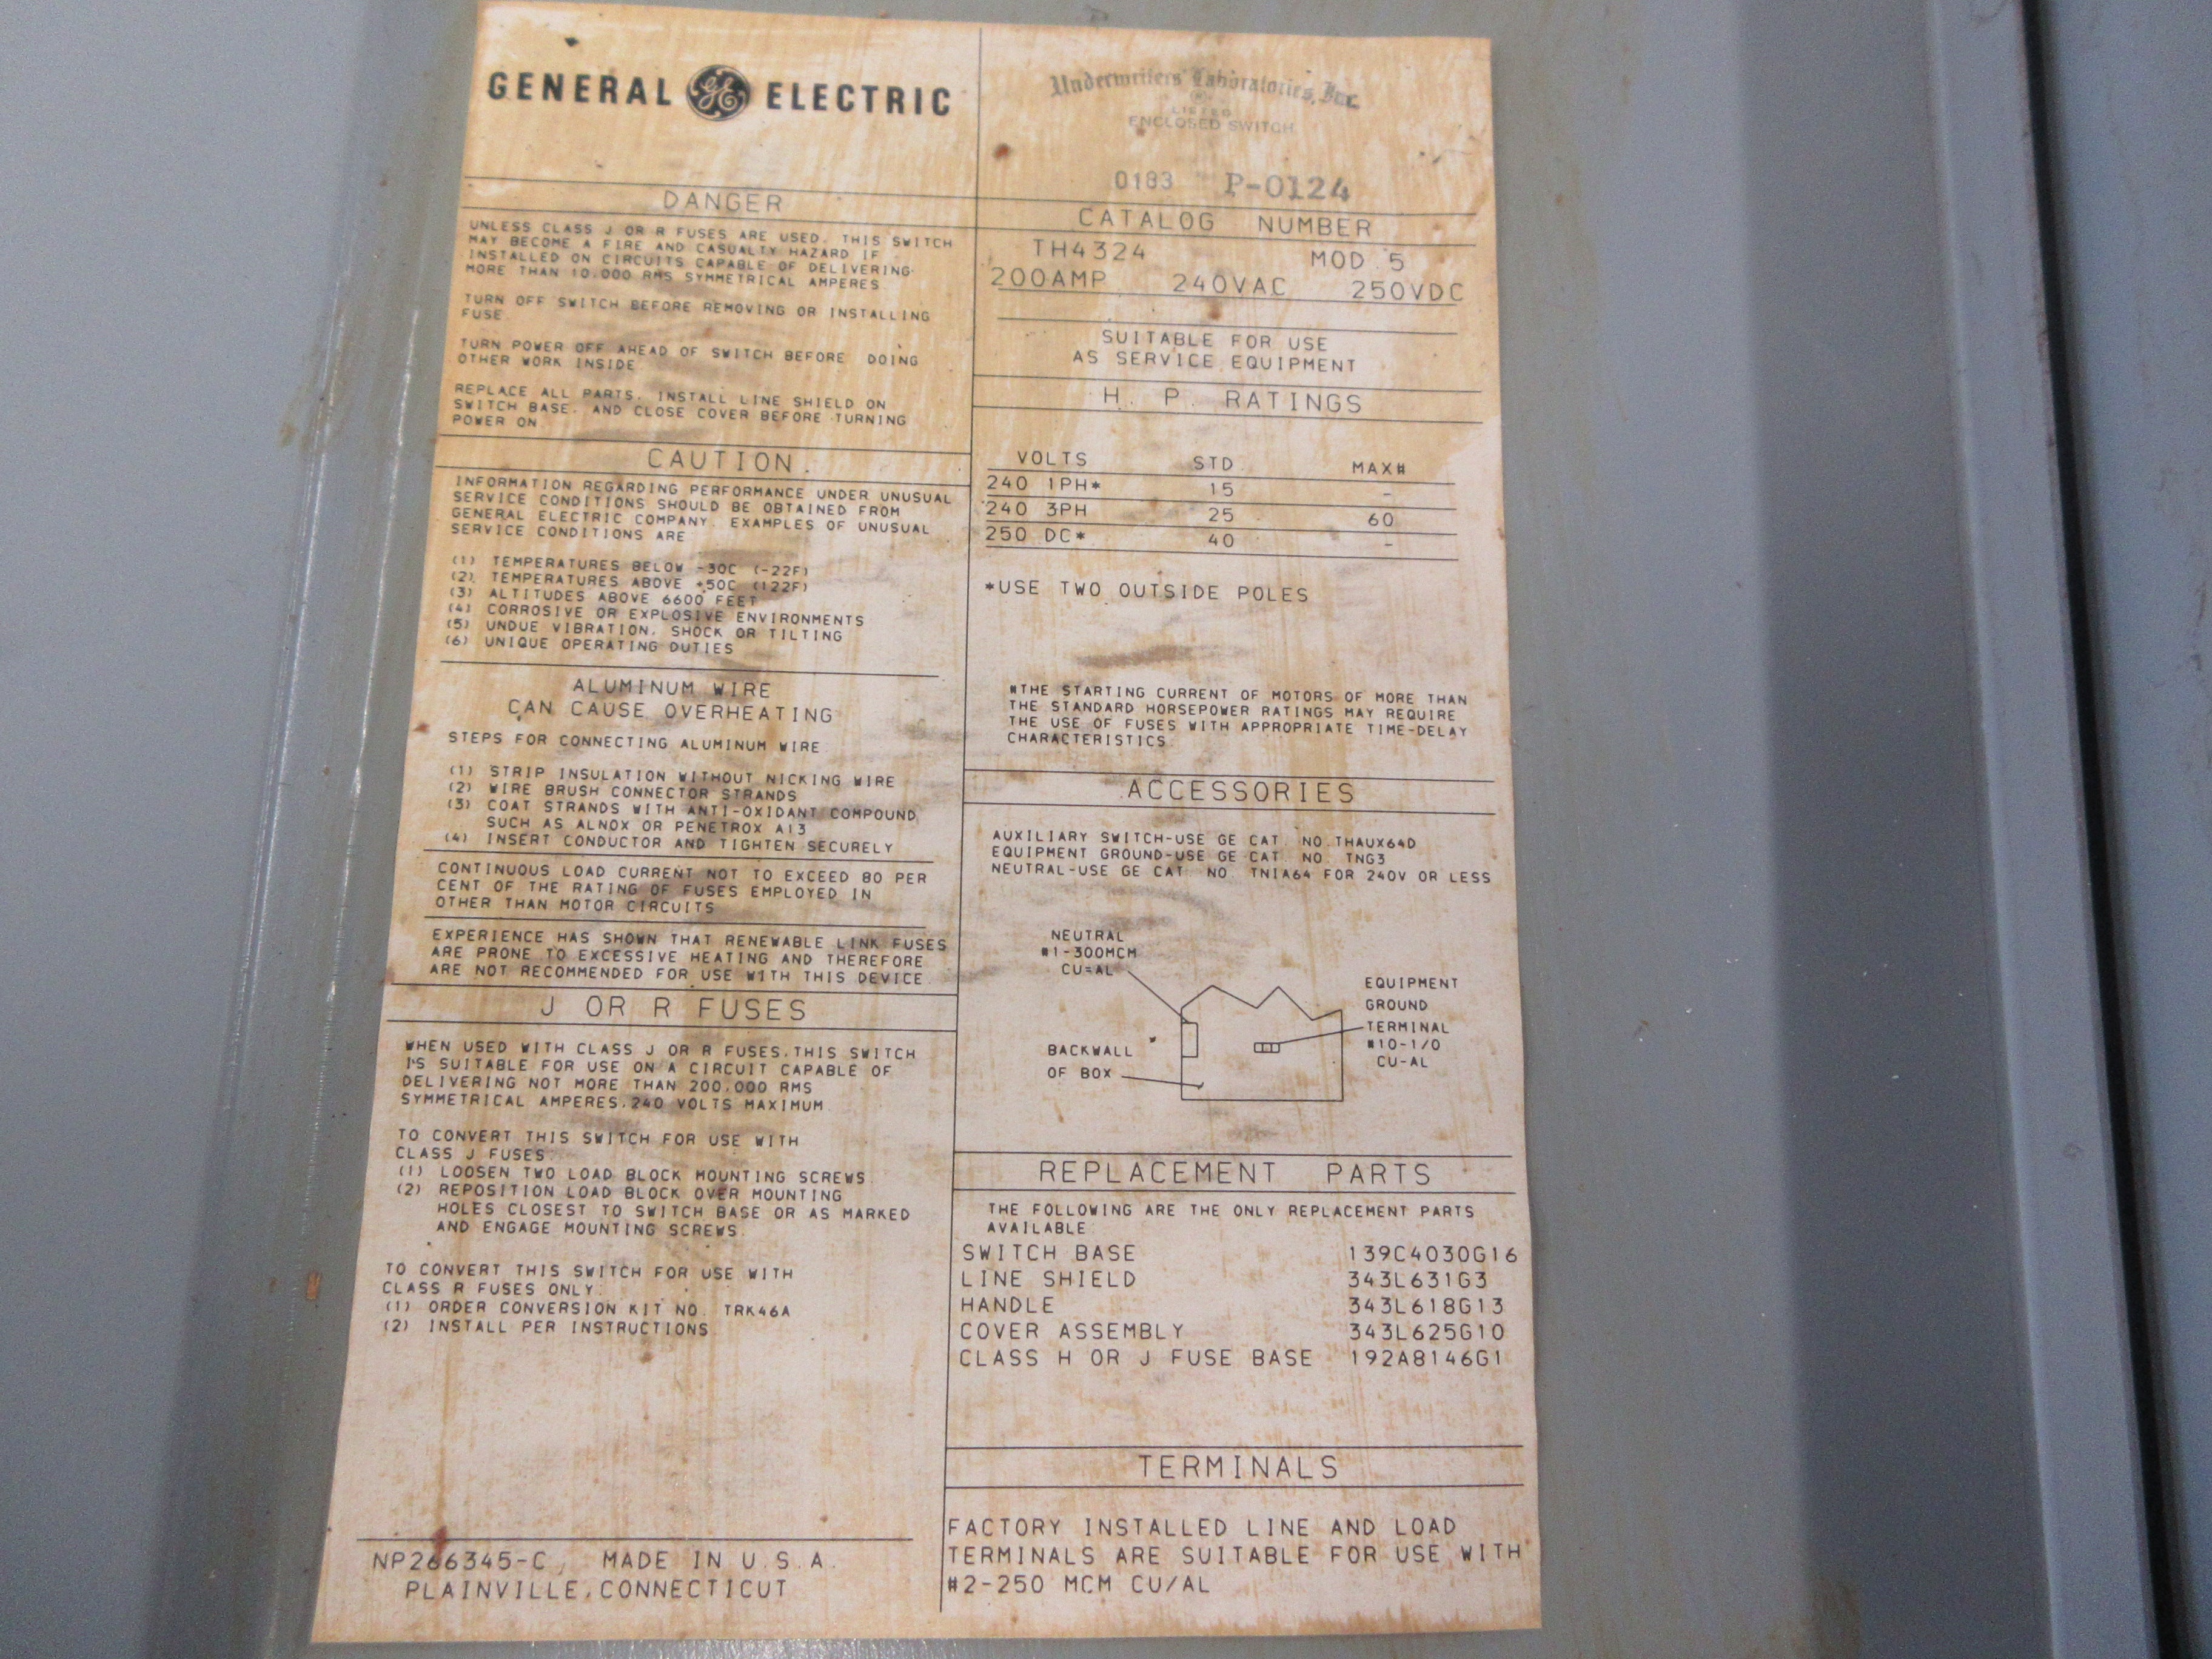 GENERAL GE ELECTRIC
DANGER
UNLESS CLASS J OR R FUSES ARE USED, THIS SWITCH
MAY BECOME A FIRE AND CASUALTY HAZARD IF
INSTALLED ON CIRCUITS CAPABLE OF DELIVERING
MORE THAN 10,000 RMS SYMMETRICAL AMPERES
TURN OFF SWITCH BEFORE REMOVING OR INSTALLING
FUSE
TURN POWER OFF AHEAD OF SWITCH BEFORE DOING
OTHER WORK INSIDE
REPLACE ALL PARTS, INSTALL LINE SHIELD ON
SWITCH BASE, AND CLOSE COVER BEFORE TURNING
POWER ON
CAUTION
INFORMATION REGARDING PERFORMANCE UNDER UNUSUAL
SERVICE CONDITIONS SHOULD BE OBTAINED FROM
GENERAL ELECTRIC COMPANY. EXAMPLES OF UNUSUAL
SERVICE CONDITIONS ARE
(1) TEMPERATURES BELOW -30C (-22F)
(2) TEMPERATURES ABOVE +50C (122F)
(3) ALTITUDES ABOVE 6600 FEET
(4) CORROSIVE OR EXPLOSIVE ENVIRONMENTS
(5) UNDUE VIBRATION, SHOCK OR TILTING
(6) UNIQUE OPERATING DUTIES
ALUMINUM WIRE
CAN CAUSE OVERHEATING
STEPS FOR CONNECTING ALUMINUM WIRE
(1) STRIP INSULATION WITHOUT NICKING WIRE
(2) WIRE BRUSH CONNECTOR STRANDS
(3) COAT STRANDS WITH ANTI-OXIDANT COMPOUND
SUCH AS ALNOX OR PENETROX A13
(4) INSERT CONDUCTOR AND TIGHTEN SECURELY
CONTINUOUS LOAD CURRENT NOT TO EXCEED 80 PER
CENT OF THE RATING OF FUSES EMPLOYED IN
OTHER THAN MOTOR CIRCUITS
EXPERIENCE HAS SHOWN THAT RENEWABLE LINK FUSES
ARE PRONE TO EXCESSIVE HEATING AND THEREFORE
ARE NOT RECOMMENDED FOR USE WITH THIS DEVICE
J OR R FUSES
WHEN USED WITH CLASS J OR R FUSES, THIS SWITCH
IS SUITABLE FOR USE ON A CIRCUIT CAPABLE OF
DELIVERING NOT MORE THAN 200,000 RMS
SYMMETRICAL AMPERES, 240 VOLTS MAXIMUM
TO CONVERT THIS SWITCH FOR USE WITH
CLASS J FUSES:
(1) LOOSEN TWO LOAD BLOCK MOUNTING SCREWS
(2) REPOSITION LOAD BLOCK OVER MOUNTING
HOLES CLOSEST TO SWITCH BASE OR AS MARKED
AND ENGAGE MOUNTING SCREWS.
TO CONVERT THIS SWITCH FOR USE WITH
CLASS R FUSES ONLY:
(1) ORDER CONVERSION KIT NO. TRK46A
(2) INSTALL PER INSTRUCTIONS
NP266345-C, MADE IN U.S.A.
PLAINVILLE, CONNECTICUT
Underwriters' Laboratories, Inc.
LISTED
ENCLOSED SWITCH
0183 P-0124
CATALOG NUMBER
TH4324 MOD 5
200AMP 240VAC 250VDC
SUITABLE FOR USE
AS SERVICE EQUIPMENT
H. P. RATINGS
VOLTS STD MAX#
240 1PH* 15 -
240 3PH 25 60
250 DC* 40 -
*USE TWO OUTSIDE POLES
#THE STARTING CURRENT OF MOTORS OF MORE THAN
THE STANDARD HORSEPOWER RATINGS MAY REQUIRE
THE USE OF FUSES WITH APPROPRIATE TIME-DELAY
CHARACTERISTICS
ACCESSORIES
AUXILIARY SWITCH-USE GE CAT. NO. THAUX64D
EQUIPMENT GROUND-USE GE CAT. NO. TNG3
NEUTRAL-USE GE CAT. NO. TNIA64 FOR 240V OR LESS
NEUTRAL
#1-300MCM
CU=AL
EQUIPMENT
GROUND
TERMINAL
#10-1/0
CU-AL
BACKWALL
OF BOX
REPLACEMENT PARTS
THE FOLLOWING ARE THE ONLY REPLACEMENT PARTS
AVAILABLE
SWITCH BASE 139C4030G16
LINE SHIELD 343L631G3
HANDLE 343L618G13
COVER ASSEMBLY 343L625G10
CLASS H OR J FUSE BASE 192A8146G1
TERMINALS
FACTORY INSTALLED LINE AND LOAD
TERMINALS ARE SUITABLE FOR USE WITH
#2-250 MCM CU/AL